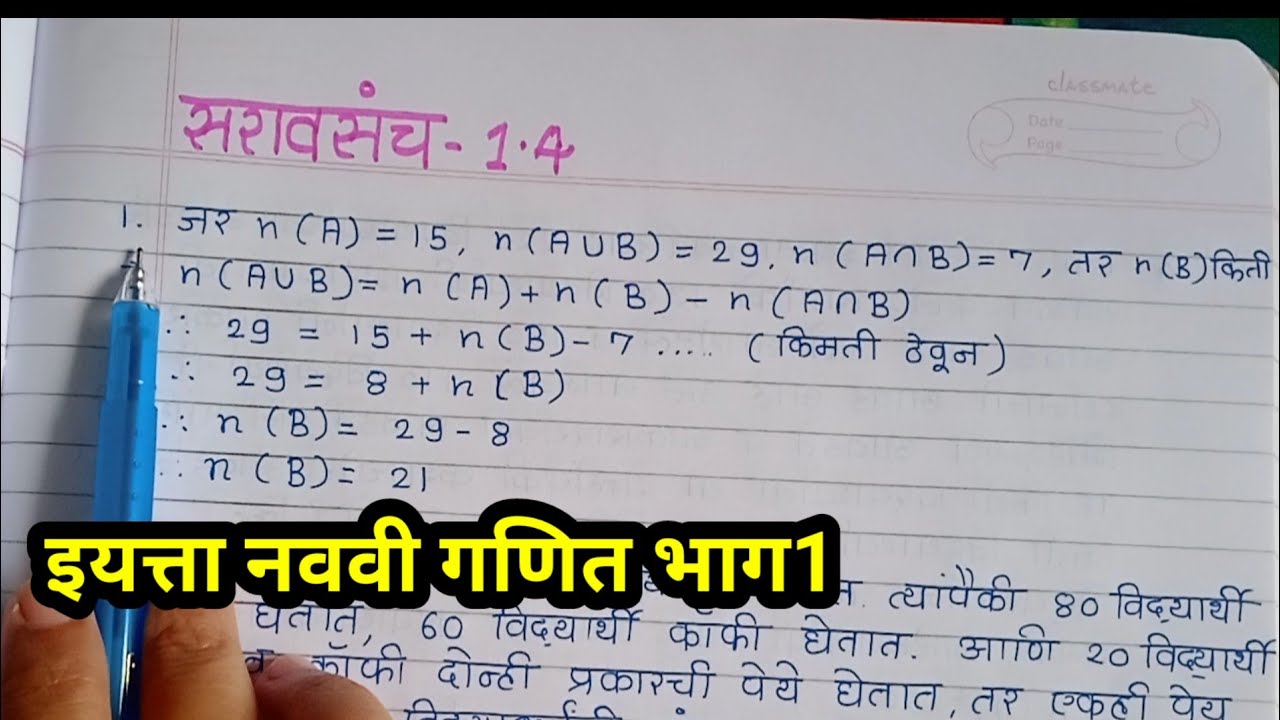 classmate
Date
Page
सरावसंच - 1.4
1. जर n (A) = 15, n (A∪B) = 29, n (A∩B) = 7, तर n (B) किती
n (A∪B) = n (A) + n (B) - n (A∩B)
∴ 29 = 15 + n (B) - 7 ..... (किमती ठेवून)
∴ 29 = 8 + n (B)
∴ n (B) = 29 - 8
∴ n (B) = 21
इयत्ता नववी गणित भाग1
त्यांपैकी 80 विद्यार्थी
घेतात, 60 विद्यार्थी कॉफी घेतात. आणि 20 विद्यार्थी
कॉफी दोन्ही प्रकारची पेये घेतात, तर एकही पेय